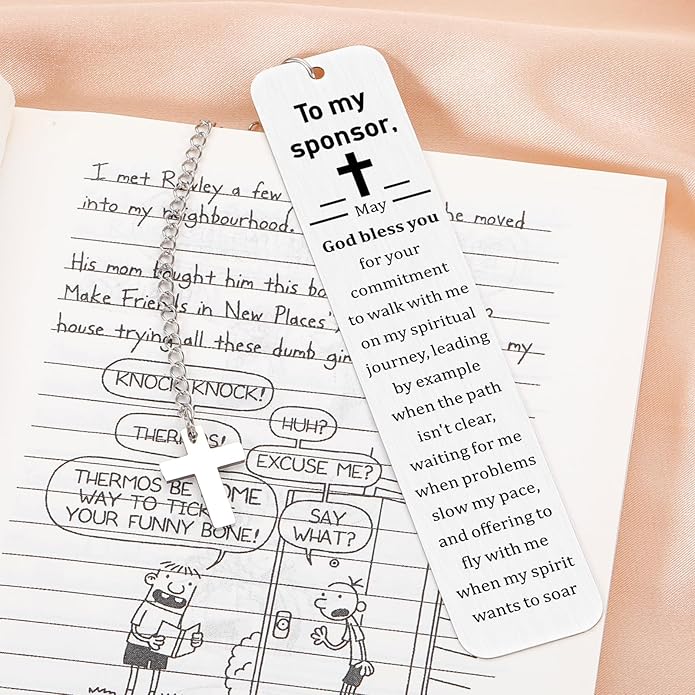 I met Rowley a few
into my neighbourhood. he moved
His mom bought him this bo
Make Friends in New Places'
house trying all these dumb my
KNOCK KNOCK!
HUH?
EXCUSE ME?
THERMOS BE
WAY TO
YOUR FUNNY BONE!
SAY
WHAT?
To my
sponsor,
May
God bless you
for your
commitment
to walk with me
on my spiritual
journey, leading
by example
when the path
isn't clear,
waiting for me
when problems
slow my pace,
and offering to
fly with me
when my spirit
wants to soar